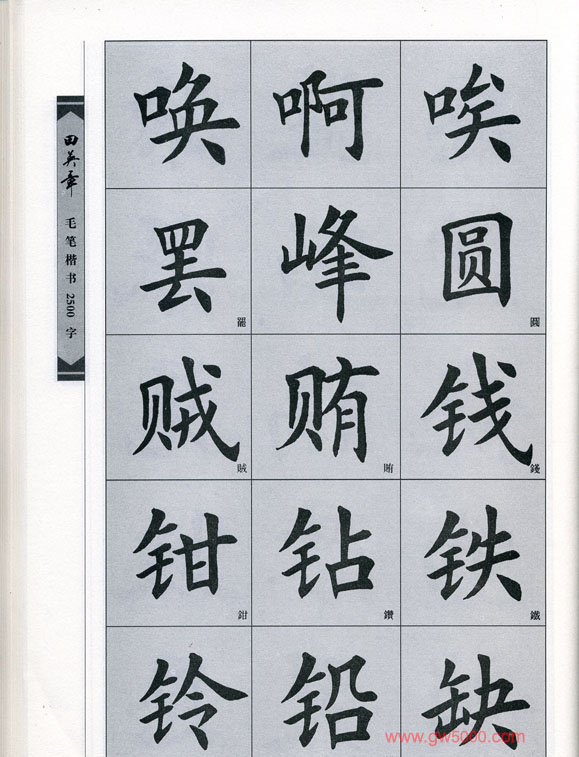 田英章 毛笔楷书 2500 字
唤 啊 唉
罢 峰 圆
罷 圓
贼 贿 钱
賊 賄 錢
钳 钻 铁
鉗 鑽 鐵
铃 铅 缺
www.gw5000.com